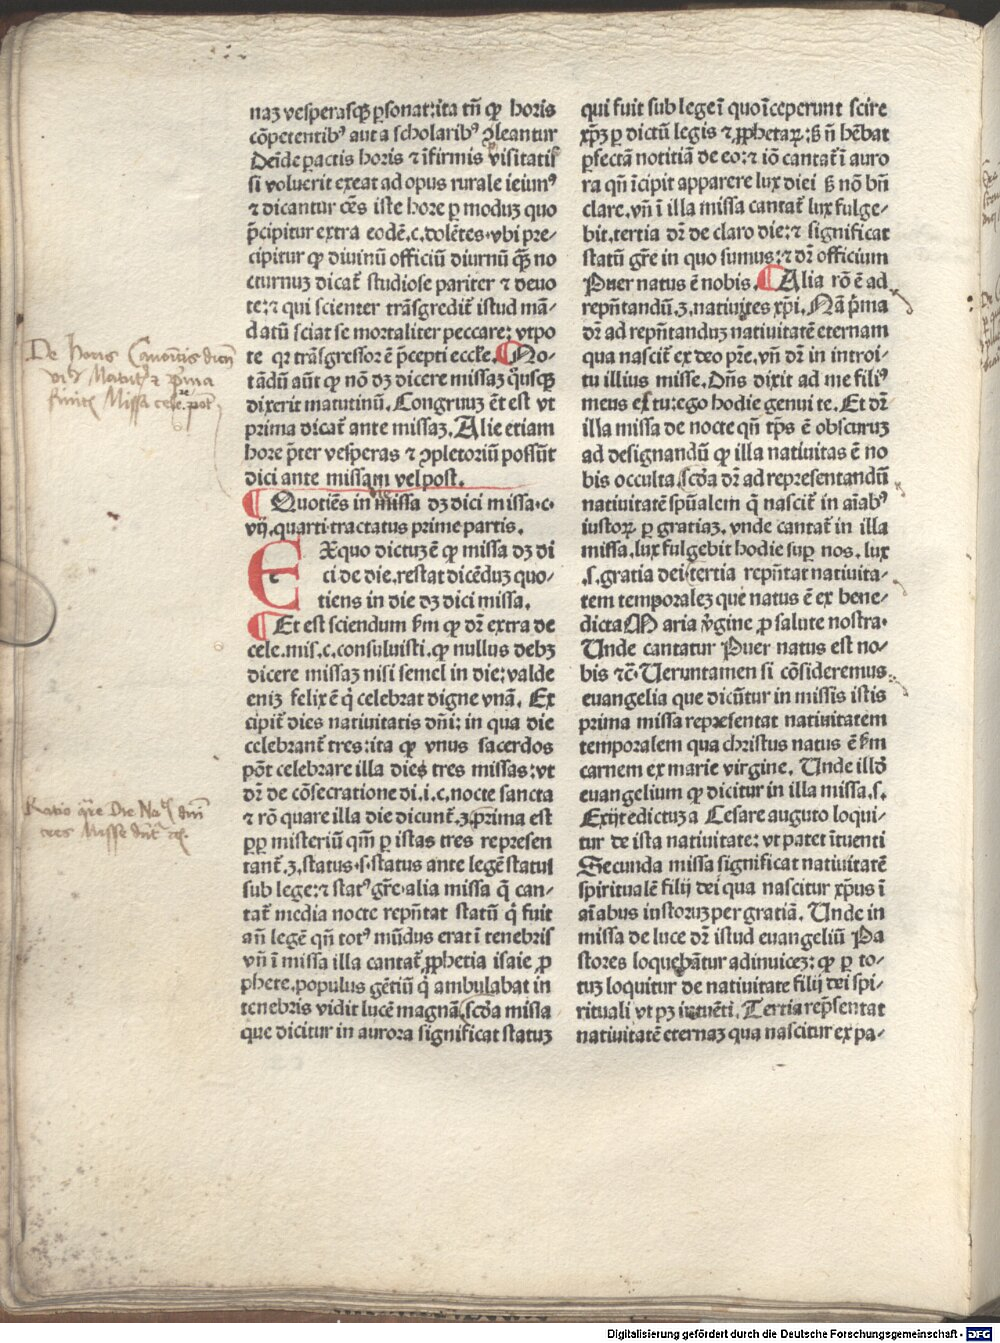 naꝫ vesperasqꝫ ꝑsonat:ita tñ ꝙ horis
cõpetentibꝰ aut a scholaribꝰ ꝯpleantur
Deĩde pactis horis ⁊ ĩfirmis visitatis
si voluerit exeat ad opus rurale ieiunꝰ
⁊ dicantur oẽs iste hore ꝑ moduꝫ quo
p̃cipitur extra eodẽ.c.dolẽtes.vbi pre-
cipitur ꝙ diuinũ officiũ diurnũ qꝫ no
cturnuꝫ dicat̃ studiose pariter ⁊ deuo
te:⁊ qui scienter trãsgredit̃ istud mã-
datũ sciat se mortaliter peccare: vtpo
te qꝛ trãsgressor ẽ p̃cepti eccl̃e. No-
tãdũ aũt ꝙ nõ dꝫ dicere missaꝫ q̃usqꝫ
dixerit matutinũ. Congruuꝫ ẽt est vt
prima dicat̃ ante missaꝫ. Alie etiam
hore p̃ter vesperas ⁊ ꝯpletoriũ possũt
dici ante missam vel post.
Quotiẽs in missa dꝫ dici missa.c.
vij.quarti tractatus prime partis.
EXquo dictuꝫ ẽ ꝙ missa dꝫ di
ci de die.restat dicẽduꝫ quo-
tiens in die dꝫ dici missa.
Et est sciendum ẜm ꝙ dr̃ extra de
cele.mis.c.consuluisti.ꝙ nullus debꝫ
dicere missaꝫ nisi semel in die:valde
eniꝫ felix ẽ q̇ celebrat digne vnã. Ex
cipit̃ dies natiuitatis dñi: in qua die
celebrant̃ tres:ita ꝙ vnus sacerdos
põt celebrare illa dies tres missas:vt
dr̃ de cõsecratione di.i.c.nocte sancta
⁊ rõ quare illa die dicunt̃.ꝫ.prima est
ꝓp̱ misteriũ qm̃ ꝑ istas tres represen
tant̃.ꝫ.status.s.status ante legẽ status
sub lege:⁊ statꝰ gr̃e.alia missa q̃ can-
tat̃ media nocte repñtat statũ q̇ fuit
añ legẽ qñ totꝰ mũdus erat ĩ tenebris
vñ ĩ missa illa cantat̃ ꝓphetia isaie ꝓ
phete.populus gẽtiũ q̇ ambulabat in
tenebris vidit lucẽ magnã.scďa missa
que dicitur in aurora significat statuꝫ
qui fuit sub lege ĩ quo ĩceperunt scire
xp̃ꝫ ꝑ dictũ legis ⁊ ꝓphetaꝝ:ẞ ñ hẽbat
ꝑfectã notitiã de eo:⁊ iõ cantat̃ ĩ auro
ra qñ ĩcipit apparere lux diei ẞ nõ bñ
clare.vñ ĩ illa missa cantat̃ lux fulge-
bit.tertia dr̃ de claro die:⁊ significat
statũ gr̃e in quo sumus:⁊ dr̃ officium
Puer natus ẽ nobis. Alia rõ ẽ ad
repñtandũ.ꝫ.natiuites xp̃i. Nã p̃ma
dr̃ ad repñtanduꝫ natiuitatẽ eternam
qua nascit̃ ex deo pr̃e.vñ dr̃ in introi-
tu illius misse. Dñs dixit ad me filiꝰ
meus es tu:ego hodie genui te. Et dr̃
illa missa de nocte qñ tp̃s ẽ obscuruꝫ
ad designandũ ꝙ illa natiuitas ẽ no
bis occulta.scďa dr̃ ad representandũ
natiuitatẽ spũalem q̃ nascit̃ in aĩabꝰ
iustoꝝ ꝑ gratiaꝫ. vnde cantat̃ in illa
missa.lux fulgebit hodie suꝑ nos. lux
.s.gratia dei:tertia repñtat natiuita-
tem temporaleꝫ que natus ẽ ex bene-
dicta Maria v̇gine ꝓ salute nostra.
Unde cantatur Puer natus est no-
bis ⁊c̃. Ueruntamen si cõsideremus
euangelia que dicũtur in missis istis
prima missa representat natiuitatem
temporalem qua christus natus ẽ ẜm
carnem ex marie virgine. Unde illď
euangelium ꝙ dicitur in illa missa.s.
Exijt edictuꝫ a Cesare auguto loqui-
tur de ista natiuitate: vt patet ĩtuenti
Secunda missa significat natiuitatẽ
spiritualẽ filij dei qua nascitur xp̃us ĩ
aĩabus iustoruꝫ per gratiã. Unde in
missa de luce dr̃ istud euangeliũ Pa
stores loquebãtur adinuiceꝫ: ꝙ ꝑ to-
tuꝫ loquitur de natiuitate filij dei spi-
rituali vt pꝫ intuẽti. Tertia rep̃sentat
natiuitatẽ eternaꝫ qua nascitur ex pa-
De Horis Canonicis
Matut ⁊ prima
Missa
Ratio quare Die
tres Misse
Digitalisierung gefördert durch die Deutsche Forschungsgemeinschaft - DFG